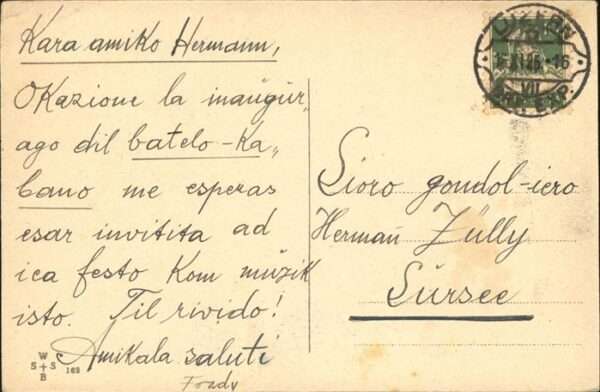 Kara amiko Hermann,
Okazione la inaugur,
ago dil batelo-ka„
bano me esperas
esar invitita ad
ica festo kom muzik
isto. Til rivido!
Amikala saluti
W
S+S
B
169
LUZERN
VII
Sioro gondol-iero
Hermañ Zülly
Sursee